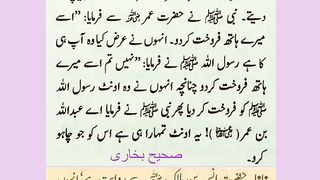 دیتے۔ نبی ﷺ نے حضرت عمر رضی اللہ عنہ سے فرمایا: ”اسے
میرے ہاتھ فروخت کردو۔ انہوں نے عرض کیا وہ آپ ہی
کا ہے رسول اللہ ﷺ نے فرمایا: ”نہیں تم اسے میرے
ہاتھ فروخت کردو چنانچہ انہوں نے وہ اونٹ رسول اللہ
ﷺ کو فروخت کر دیا پھر نبی ﷺ نے فرمایا اے عبداللہ
بن عمر (رضی اللہ عنہما)! یہ اونٹ تمہارا ہی ہے اس کو جو چاہو
کرو۔
صحیح بخاری